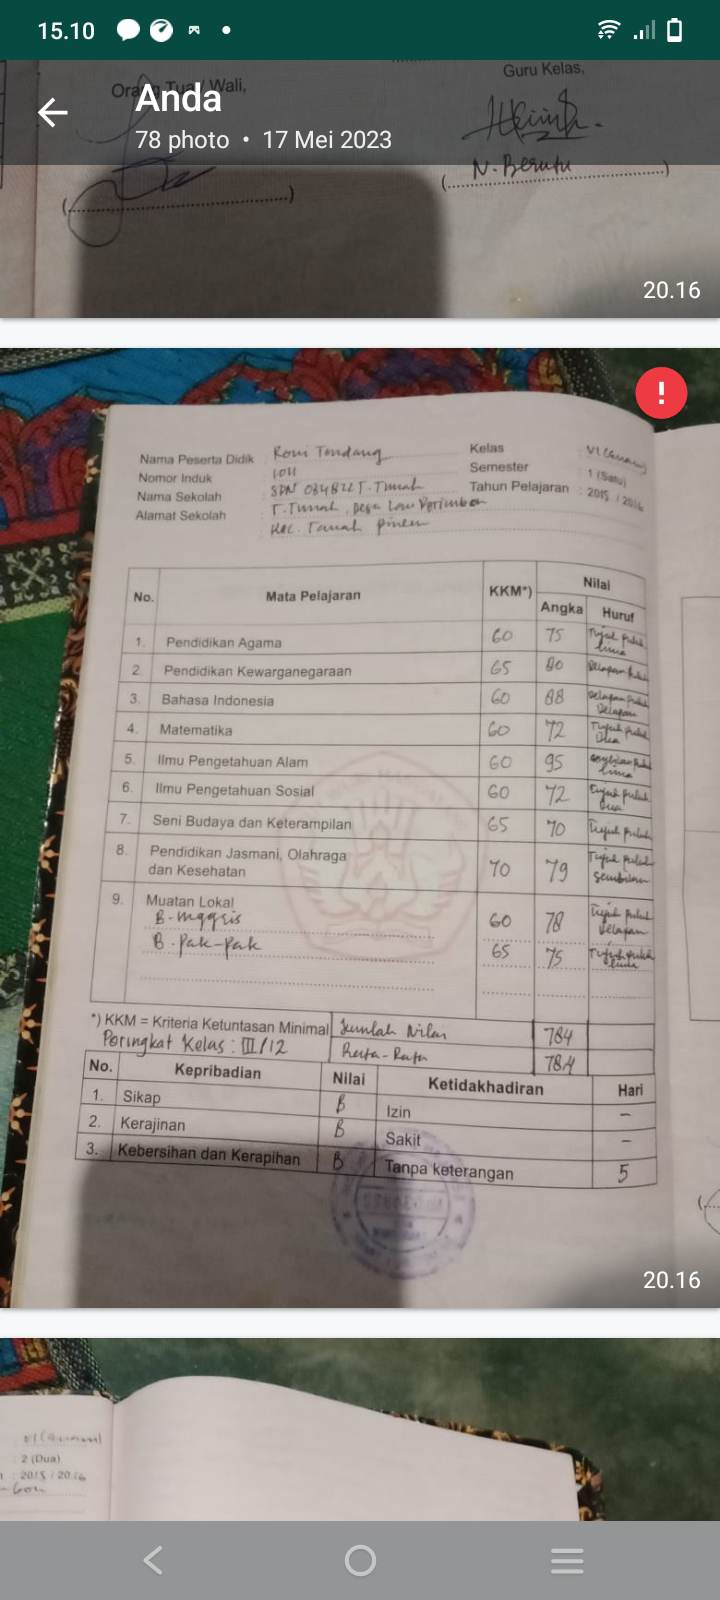 15.10
Anda
78 photo • 17 Mei 2023
Guru Kelas,
Orang Tua / Wali,
N. Berutu
20.16
Nama Peserta Didik Roni Tondang
Kelas : VI (Enam)
Nomor Induk 1011
Semester : 1 (Satu)
Nama Sekolah SDN 034822 T. Tunah
Tahun Pelajaran : 2015 / 2016
Alamat Sekolah : T. Tunah, Desa Lau Perimbon
Kec. Tanah Pinem
No. Mata Pelajaran KKM*) Nilai
Angka Huruf
1. Pendidikan Agama 60 75 Tujuh puluh lima
2. Pendidikan Kewarganegaraan 65 80 Delapan puluh
3. Bahasa Indonesia 60 88 Delapan puluh Delapan
4. Matematika 60 72 Tujuh puluh Dua
5. Ilmu Pengetahuan Alam 60 95 Sembilan puluh lima
6. Ilmu Pengetahuan Sosial 60 72 Tujuh puluh Dua
7. Seni Budaya dan Keterampilan 65 70 Tujuh puluh
8. Pendidikan Jasmani, Olahraga dan Kesehatan 70 79 Tujuh puluh Sembilan
9. Muatan Lokal
B-Inggris 60 78 Tujuh puluh Delapan
B. Pak-Pak 65 75 Tujuh puluh Lima
*) KKM = Kriteria Ketuntasan Minimal Jumlah Nilai 784
Peringkat Kelas : III/12 Rata-Rata 78,4
No. Kepribadian Nilai Ketidakhadiran Hari
1. Sikap B Izin –
2. Kerajinan B Sakit –
3. Kebersihan dan Kerapihan B Tanpa keterangan 5
20.16
VI (Enam)
: 2 (Dua)
: 2015 / 2016